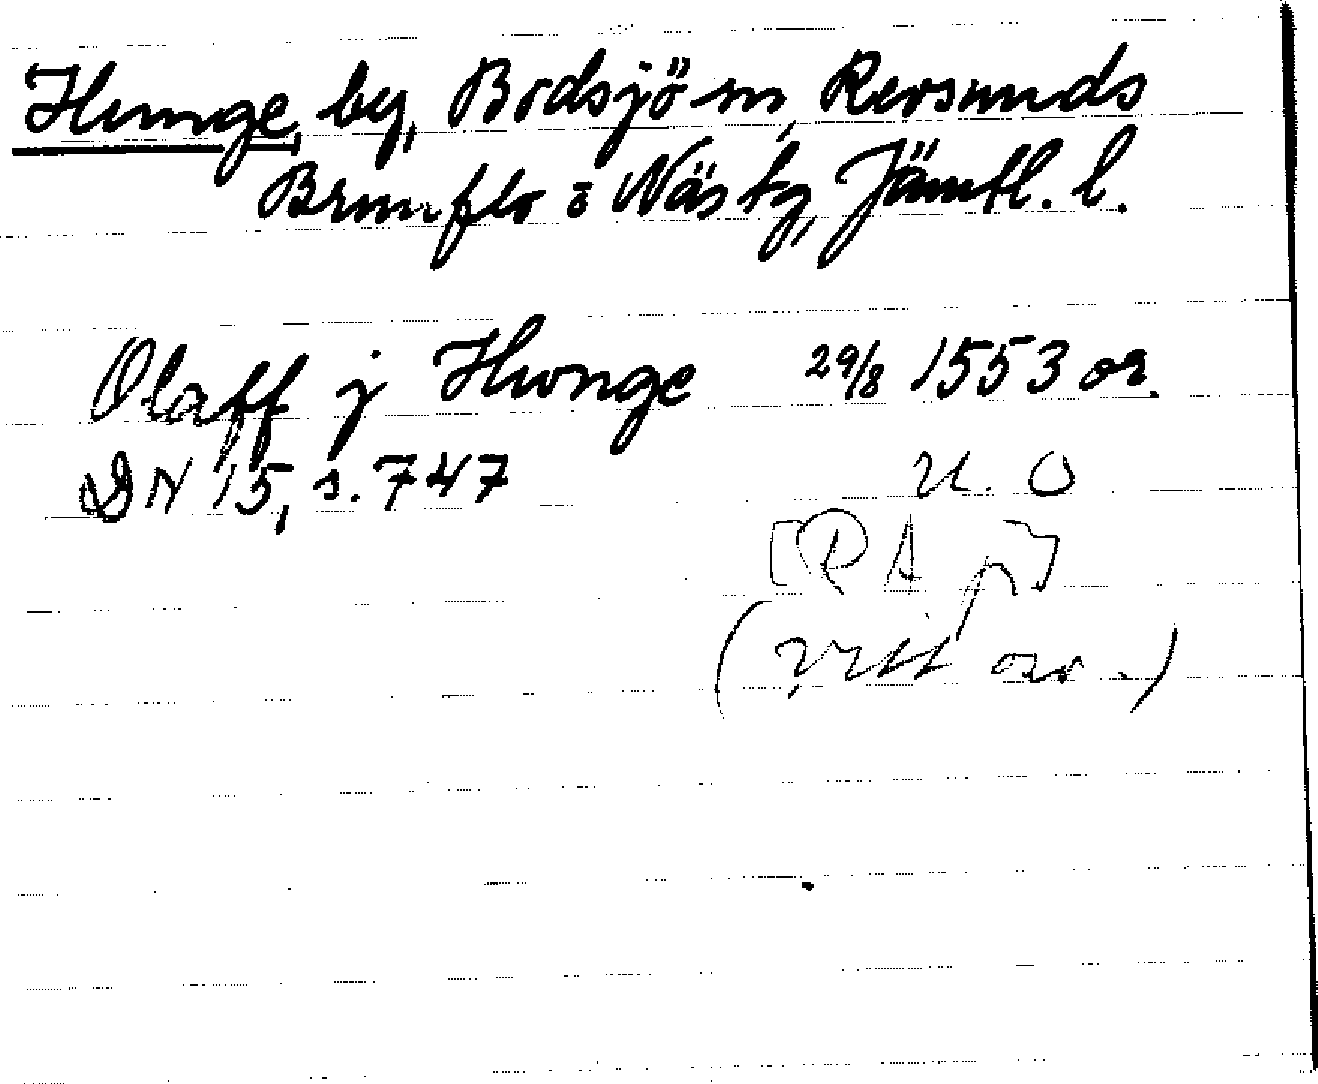 Hunge, by, Bodsjö sn, Revsunds
Brunflo o Näs tg, Jämtl. l.
Olaff j Hwnge 29/8 1553 or.
DN 15, s. 747 U. O
[RA